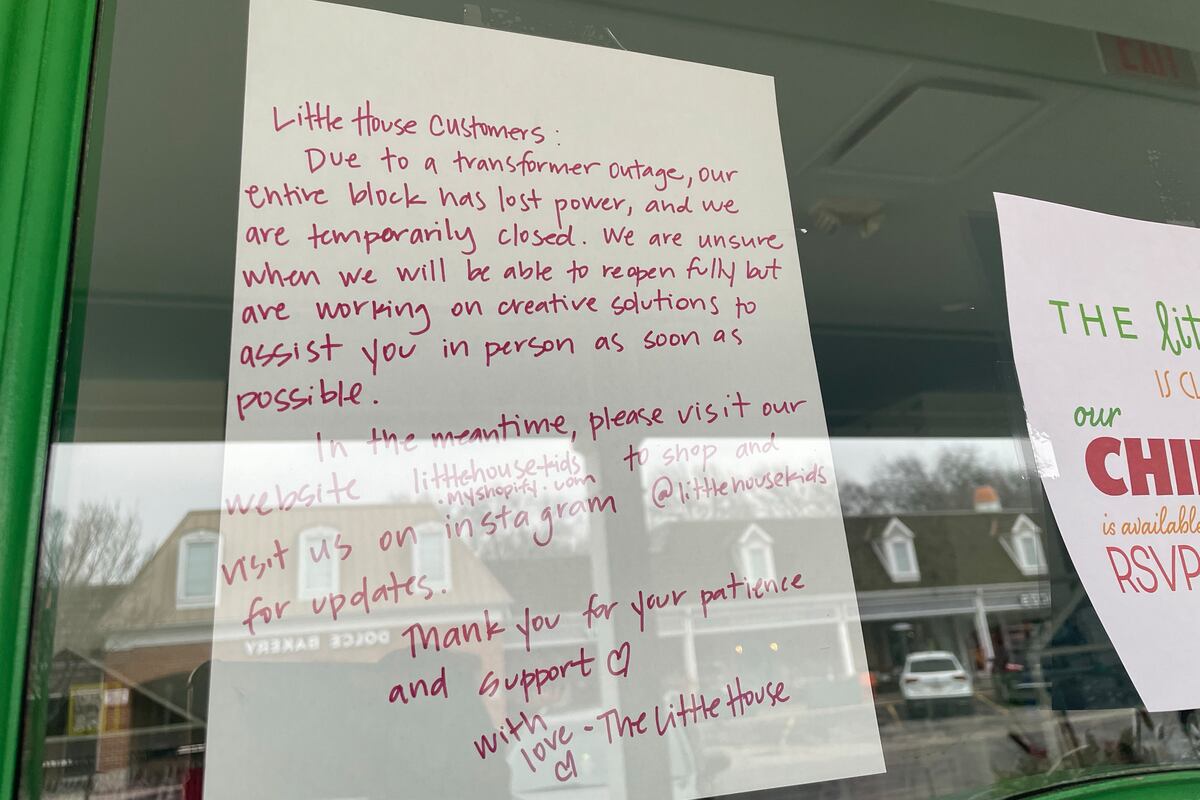 Little House Customers:
Due to a transformer outage, our
entire block has lost power, and we
are temporarily closed. We are unsure
when we will be able to reopen fully but
are working on creative solutions to
assist you in person as soon as
possible.
In the meantime, please visit our
website littlehousekids to shop and
.myshopify.com
visit us on instagram @littlehousekids
for updates.
Thank you for your patience
and support ♡
with
love - The Little House
♡
EXIT
THE lit
IS CL
our
CHI
is available
RSVP
DOLCE BAKERY